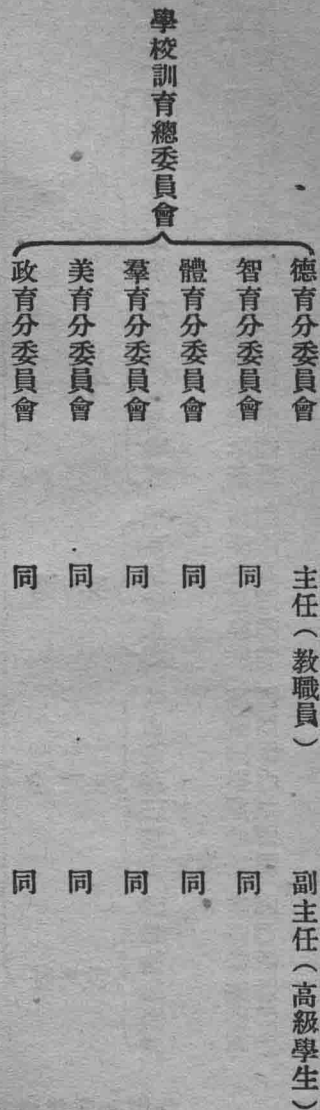 學校訓育總委員會
德育分委員會 主任(教職員) 副主任(高級學生)
智育分委員會 同 同
體育分委員會 同 同
羣育分委員會 同 同
美育分委員會 同 同
政育分委員會 同 同